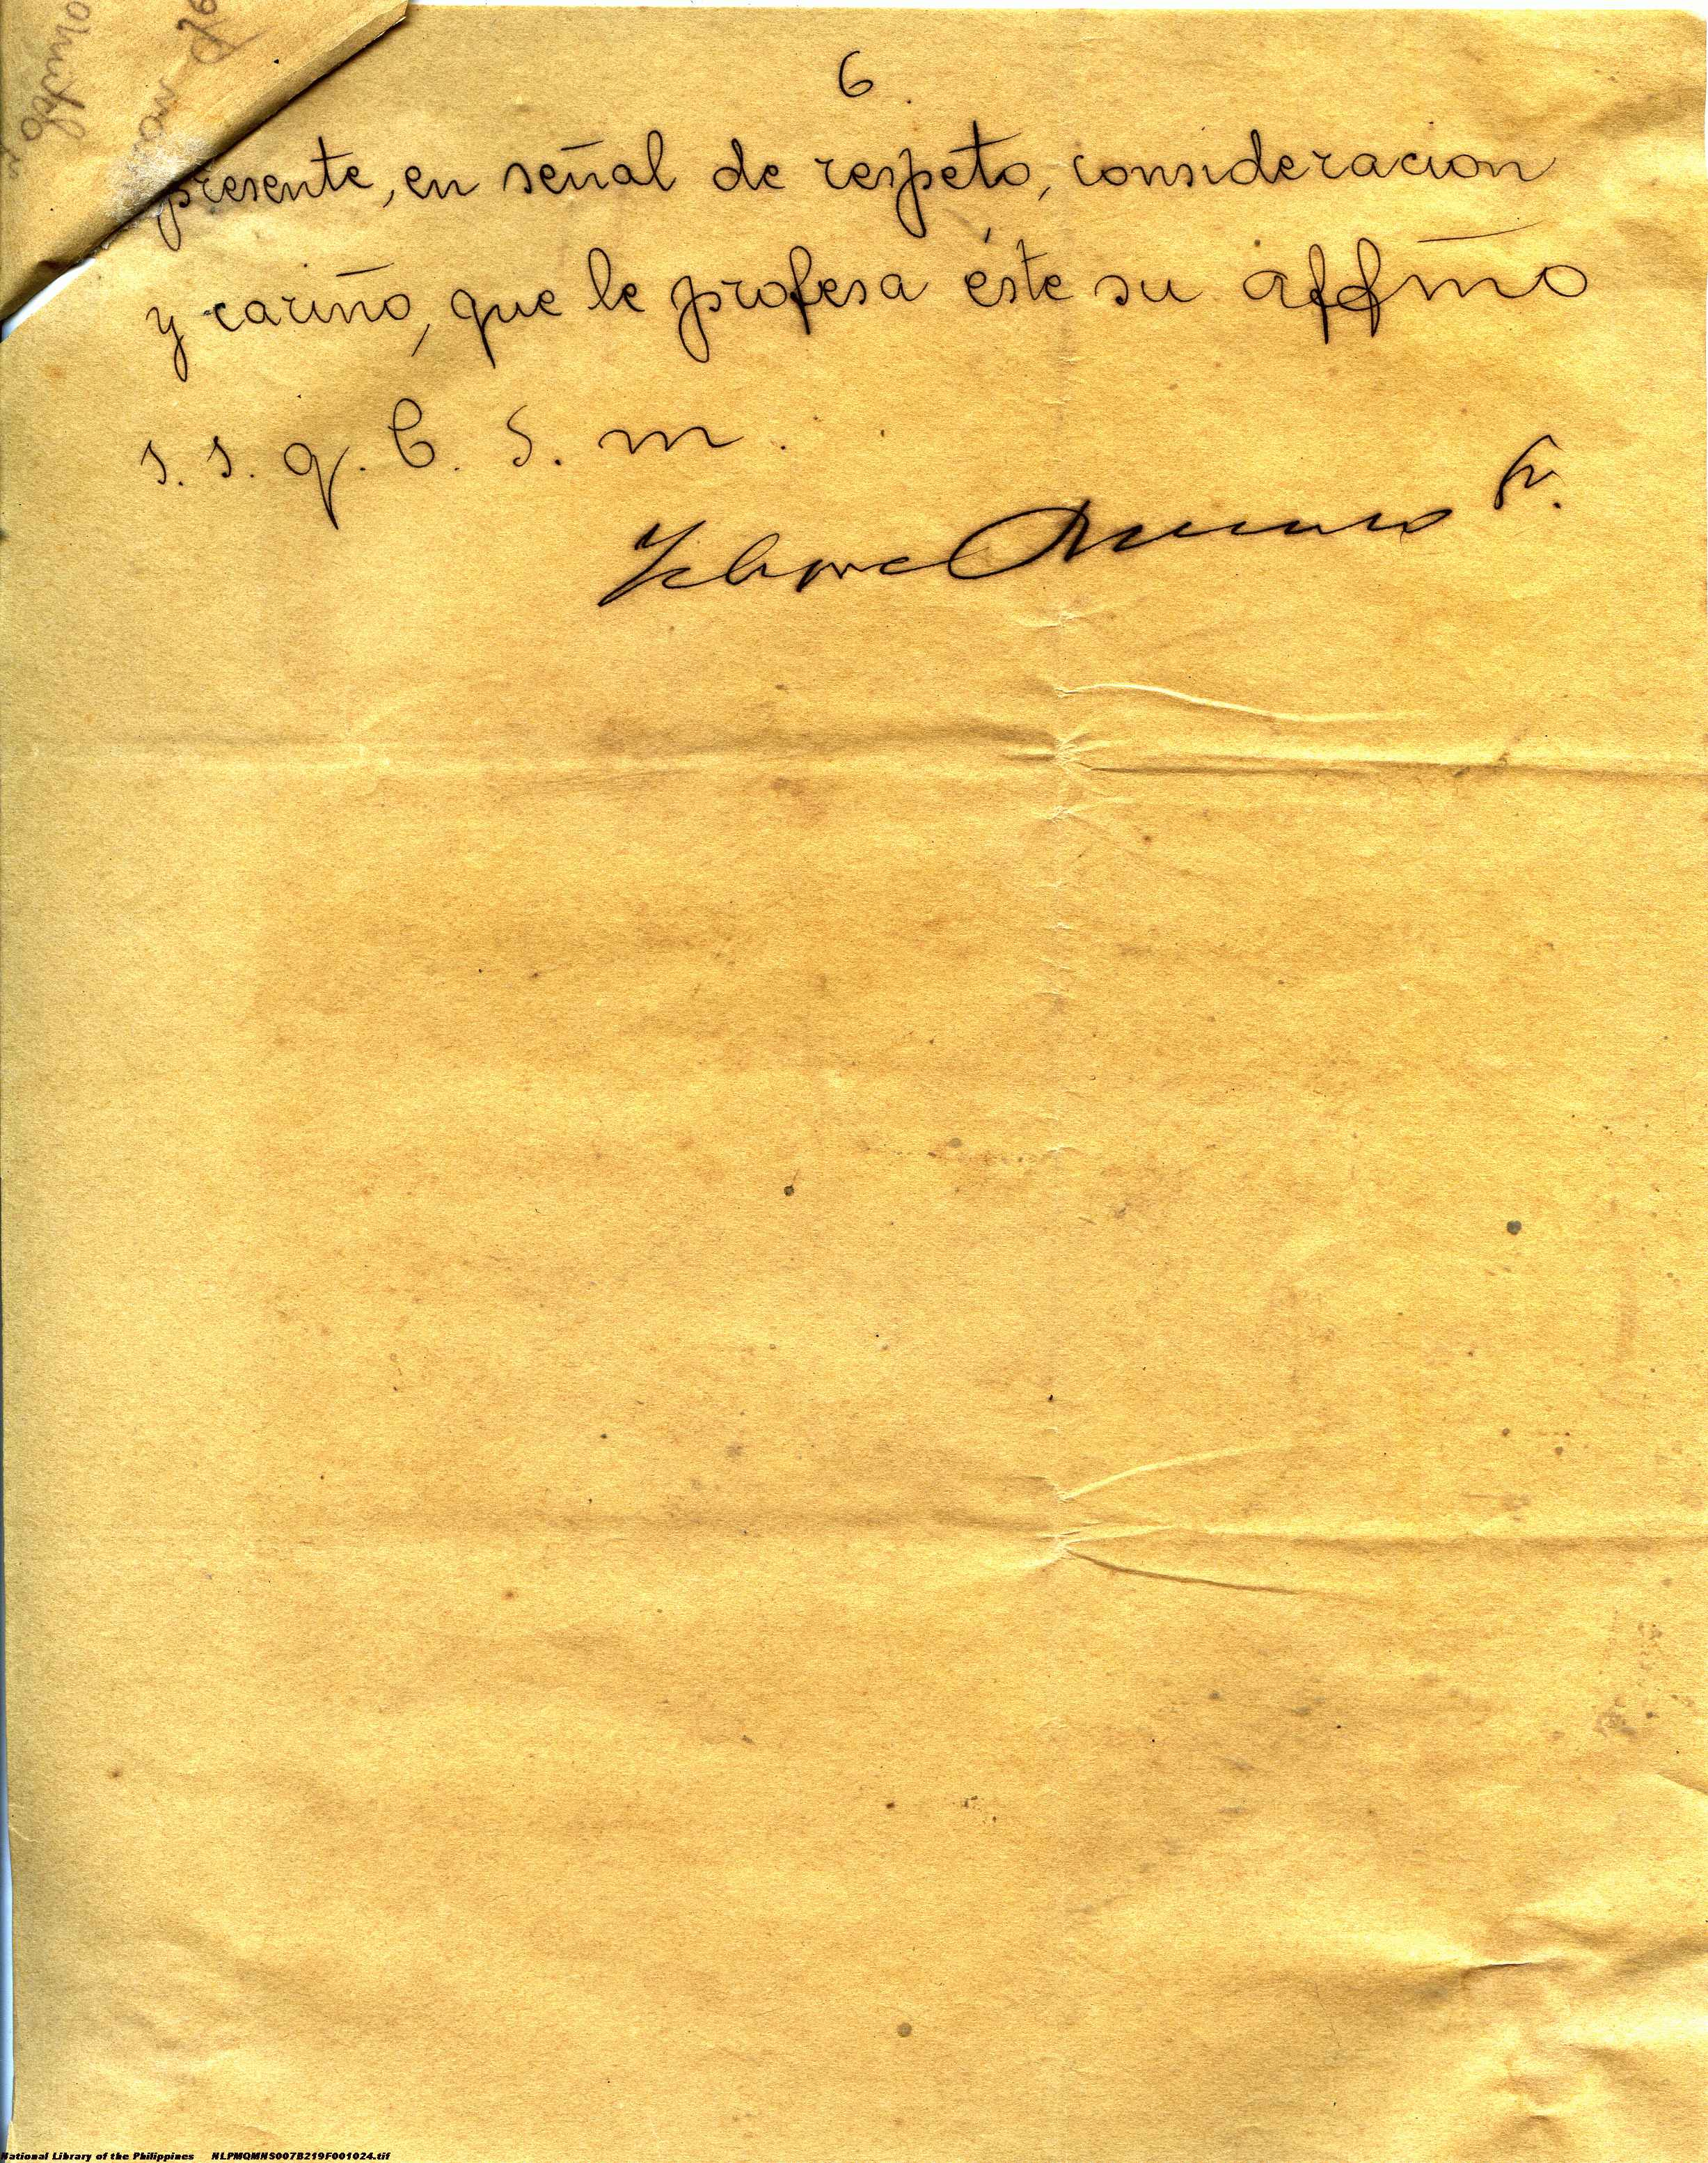 6.
presente, en señal de respeto, consideracion
y cariño, que le profesa éste su affmo
s. s. q. b. s. m.
National Library of the Philippines NLPMQMNS007B219F001024.tif